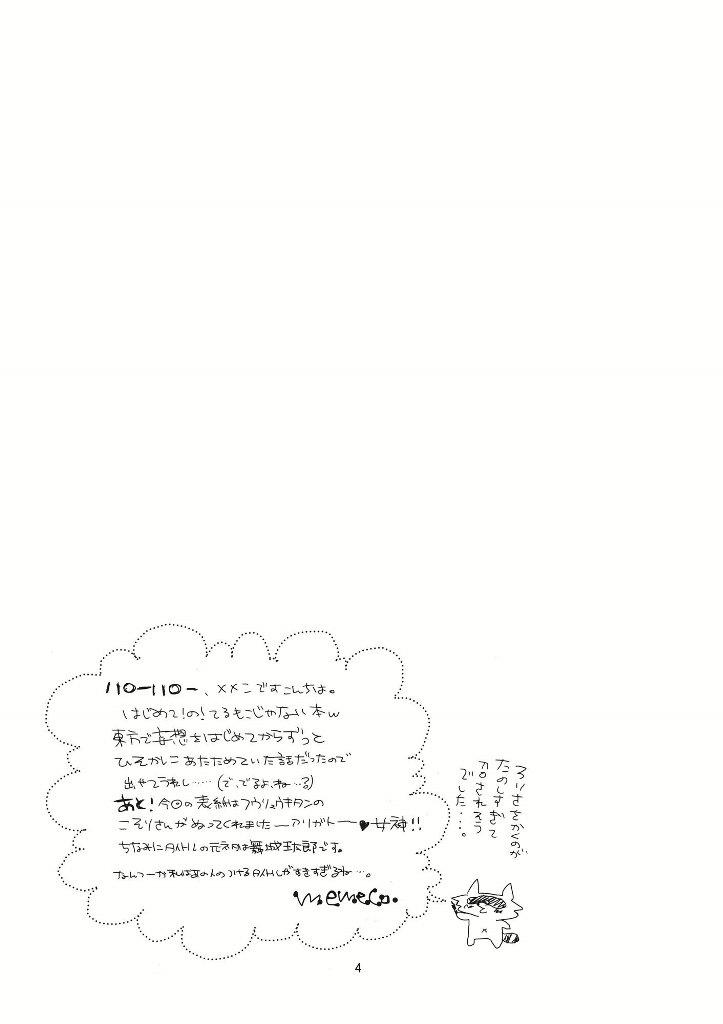 ハローハロー、メメコですこんちは。
はじめて!の!てるもこじゃない本w
東方で妄想をはじめてからずっと
ひそかにあたためていた話だったので
出せてうれし……(で、でるよ、ね…る)
あと!今回の表紙はフウリュウキタンの
こそりさんがぬってくれましたーアリガトー♥女神!!
ちなみにタイトルの元ネタは舞城王太郎です。
なんつーか私はこの人のつけるタイトルがすきすぎるね…。
memeco.
ろりさをかくのが
たのしすぎて
されそう
でした…。
4